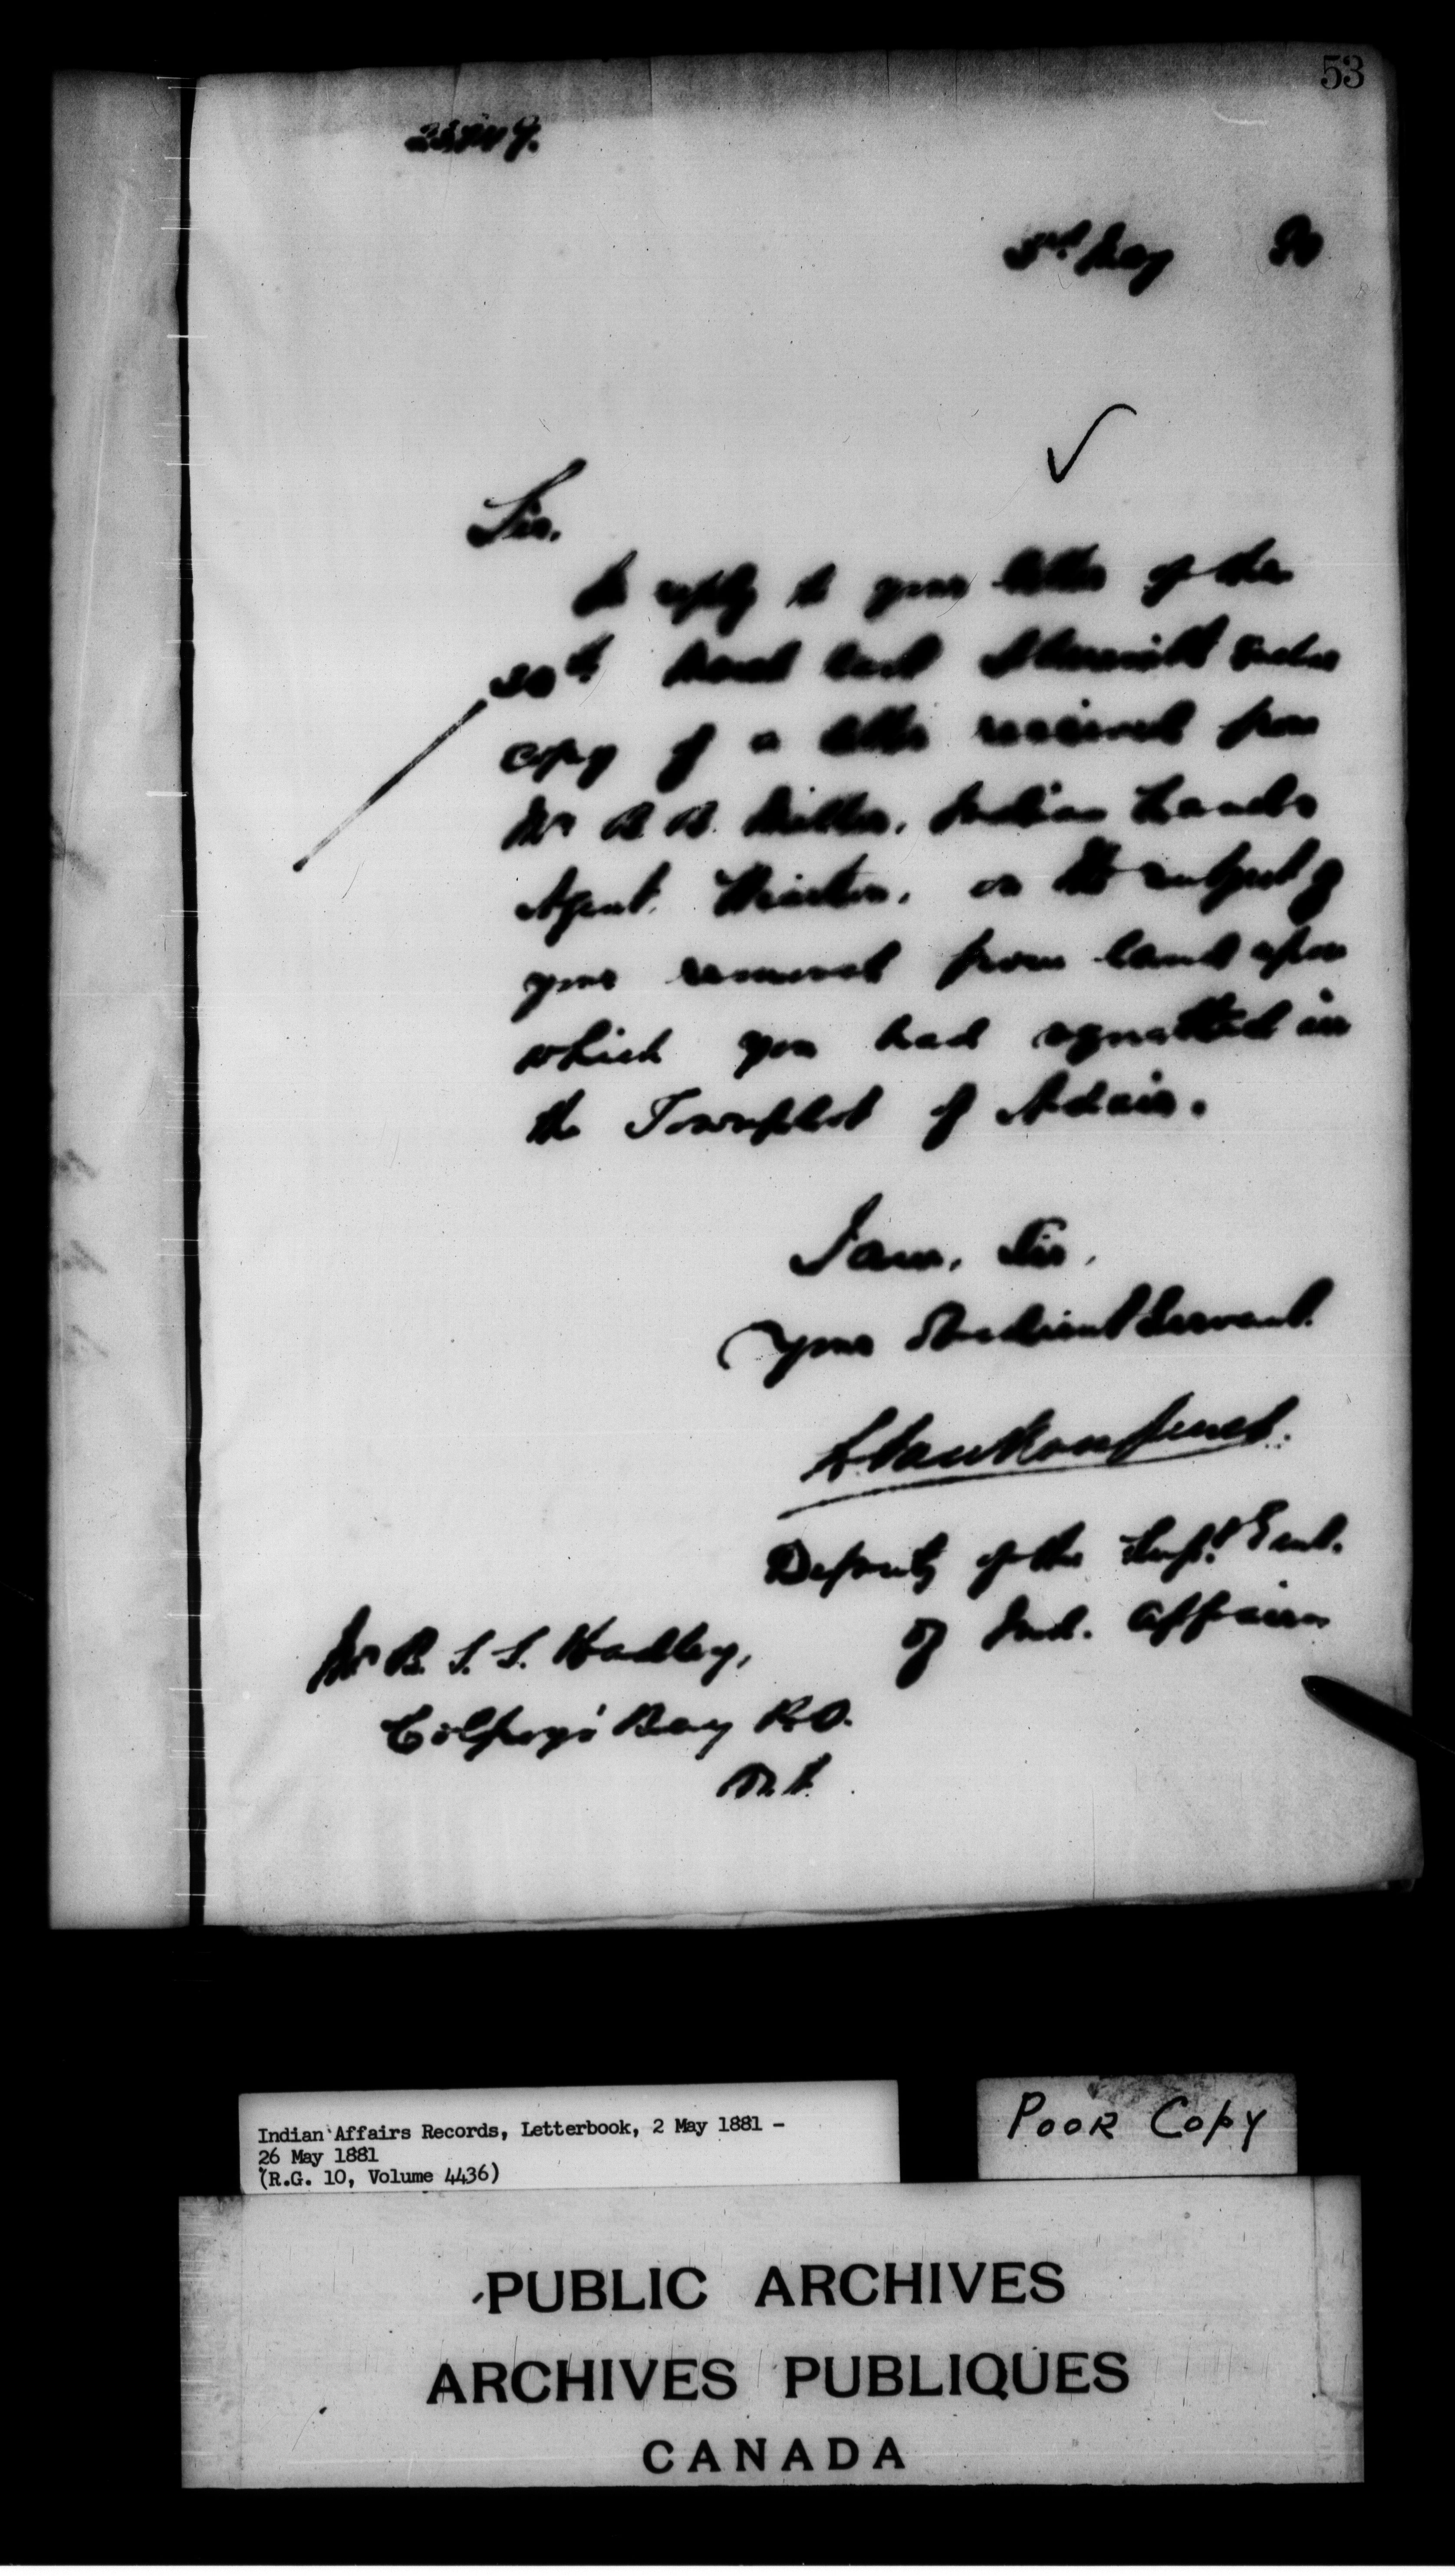 53
3rd May
Sir.
In reply to your letter of the
30th March last I transmit
copy of a letter received from
Mr B. B. Miller, Indian Lands
Agent, Wiarton, on the subject of
your removal from land upon
which you had squatted in
the Townplot of Adair.
I am, Sir,
Your Obedient Servant.
L. VanKoughnet.
Deputy of the Supt. Genl.
of Ind. Affairs
Mr B. S. S. Hadley,
Colpoy's Bay P.O.
Indian Affairs Records, Letterbook, 2 May 1881 -
26 May 1881
(R.G. 10, Volume 4436)
POOR COPY
PUBLIC ARCHIVES
ARCHIVES PUBLIQUES
CANADA